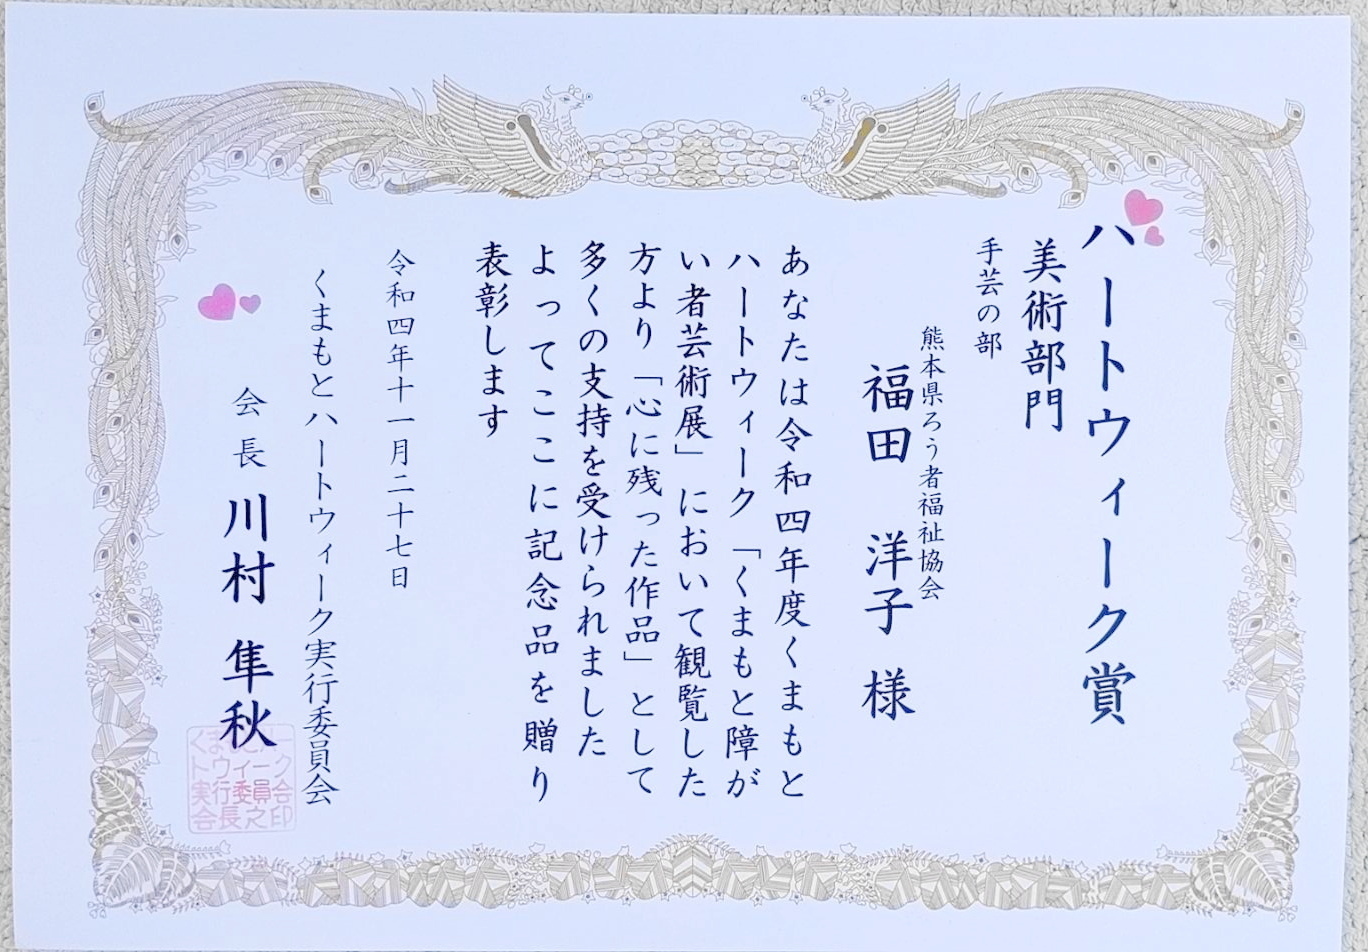 ハートウィーク賞
美術部門
手芸の部
熊本県ろう者福祉協会
福田 洋子 様
あなたは令和四年度くまもと
ハートウィーク「くまもと障が
い者芸術展」において観覧した
方より「心に残った作品」として
多くの支持を受けられました
よってここに記念品を贈り
表彰します
令和四年十一月二十七日
くまもとハートウィーク実行委員会
会長 川村 隼秋
くまもとハー
トウィーク
実行委員会
会長之印